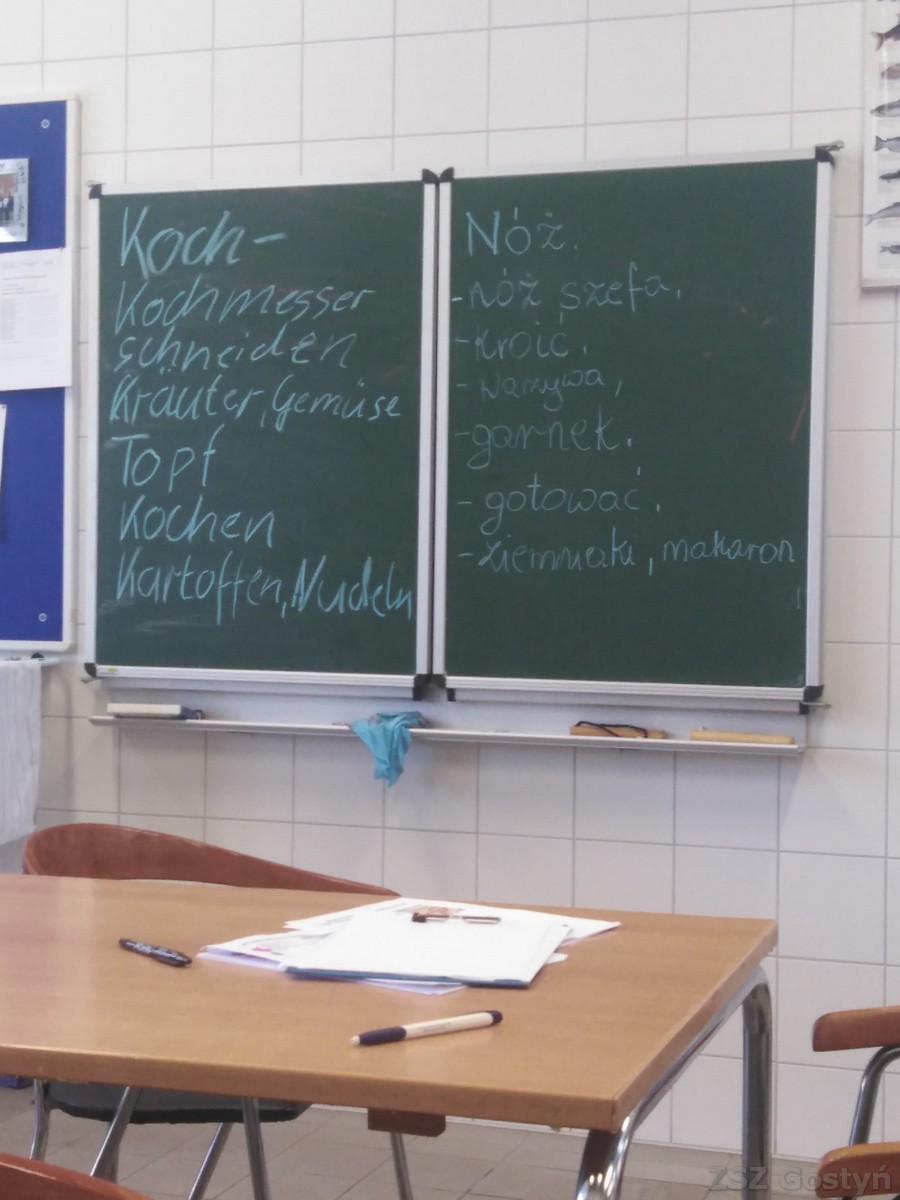 Koch-
Kochmesser
schneiden
Kräuter, Gemüse
Topf
Kochen
Kartoffen, Nudeln
Nóż.
-nóż szefa.
-kroić.
-warzywa,
-garnek.
-gotować.
-ziemniaki, makaron
ZSZ Gostyń